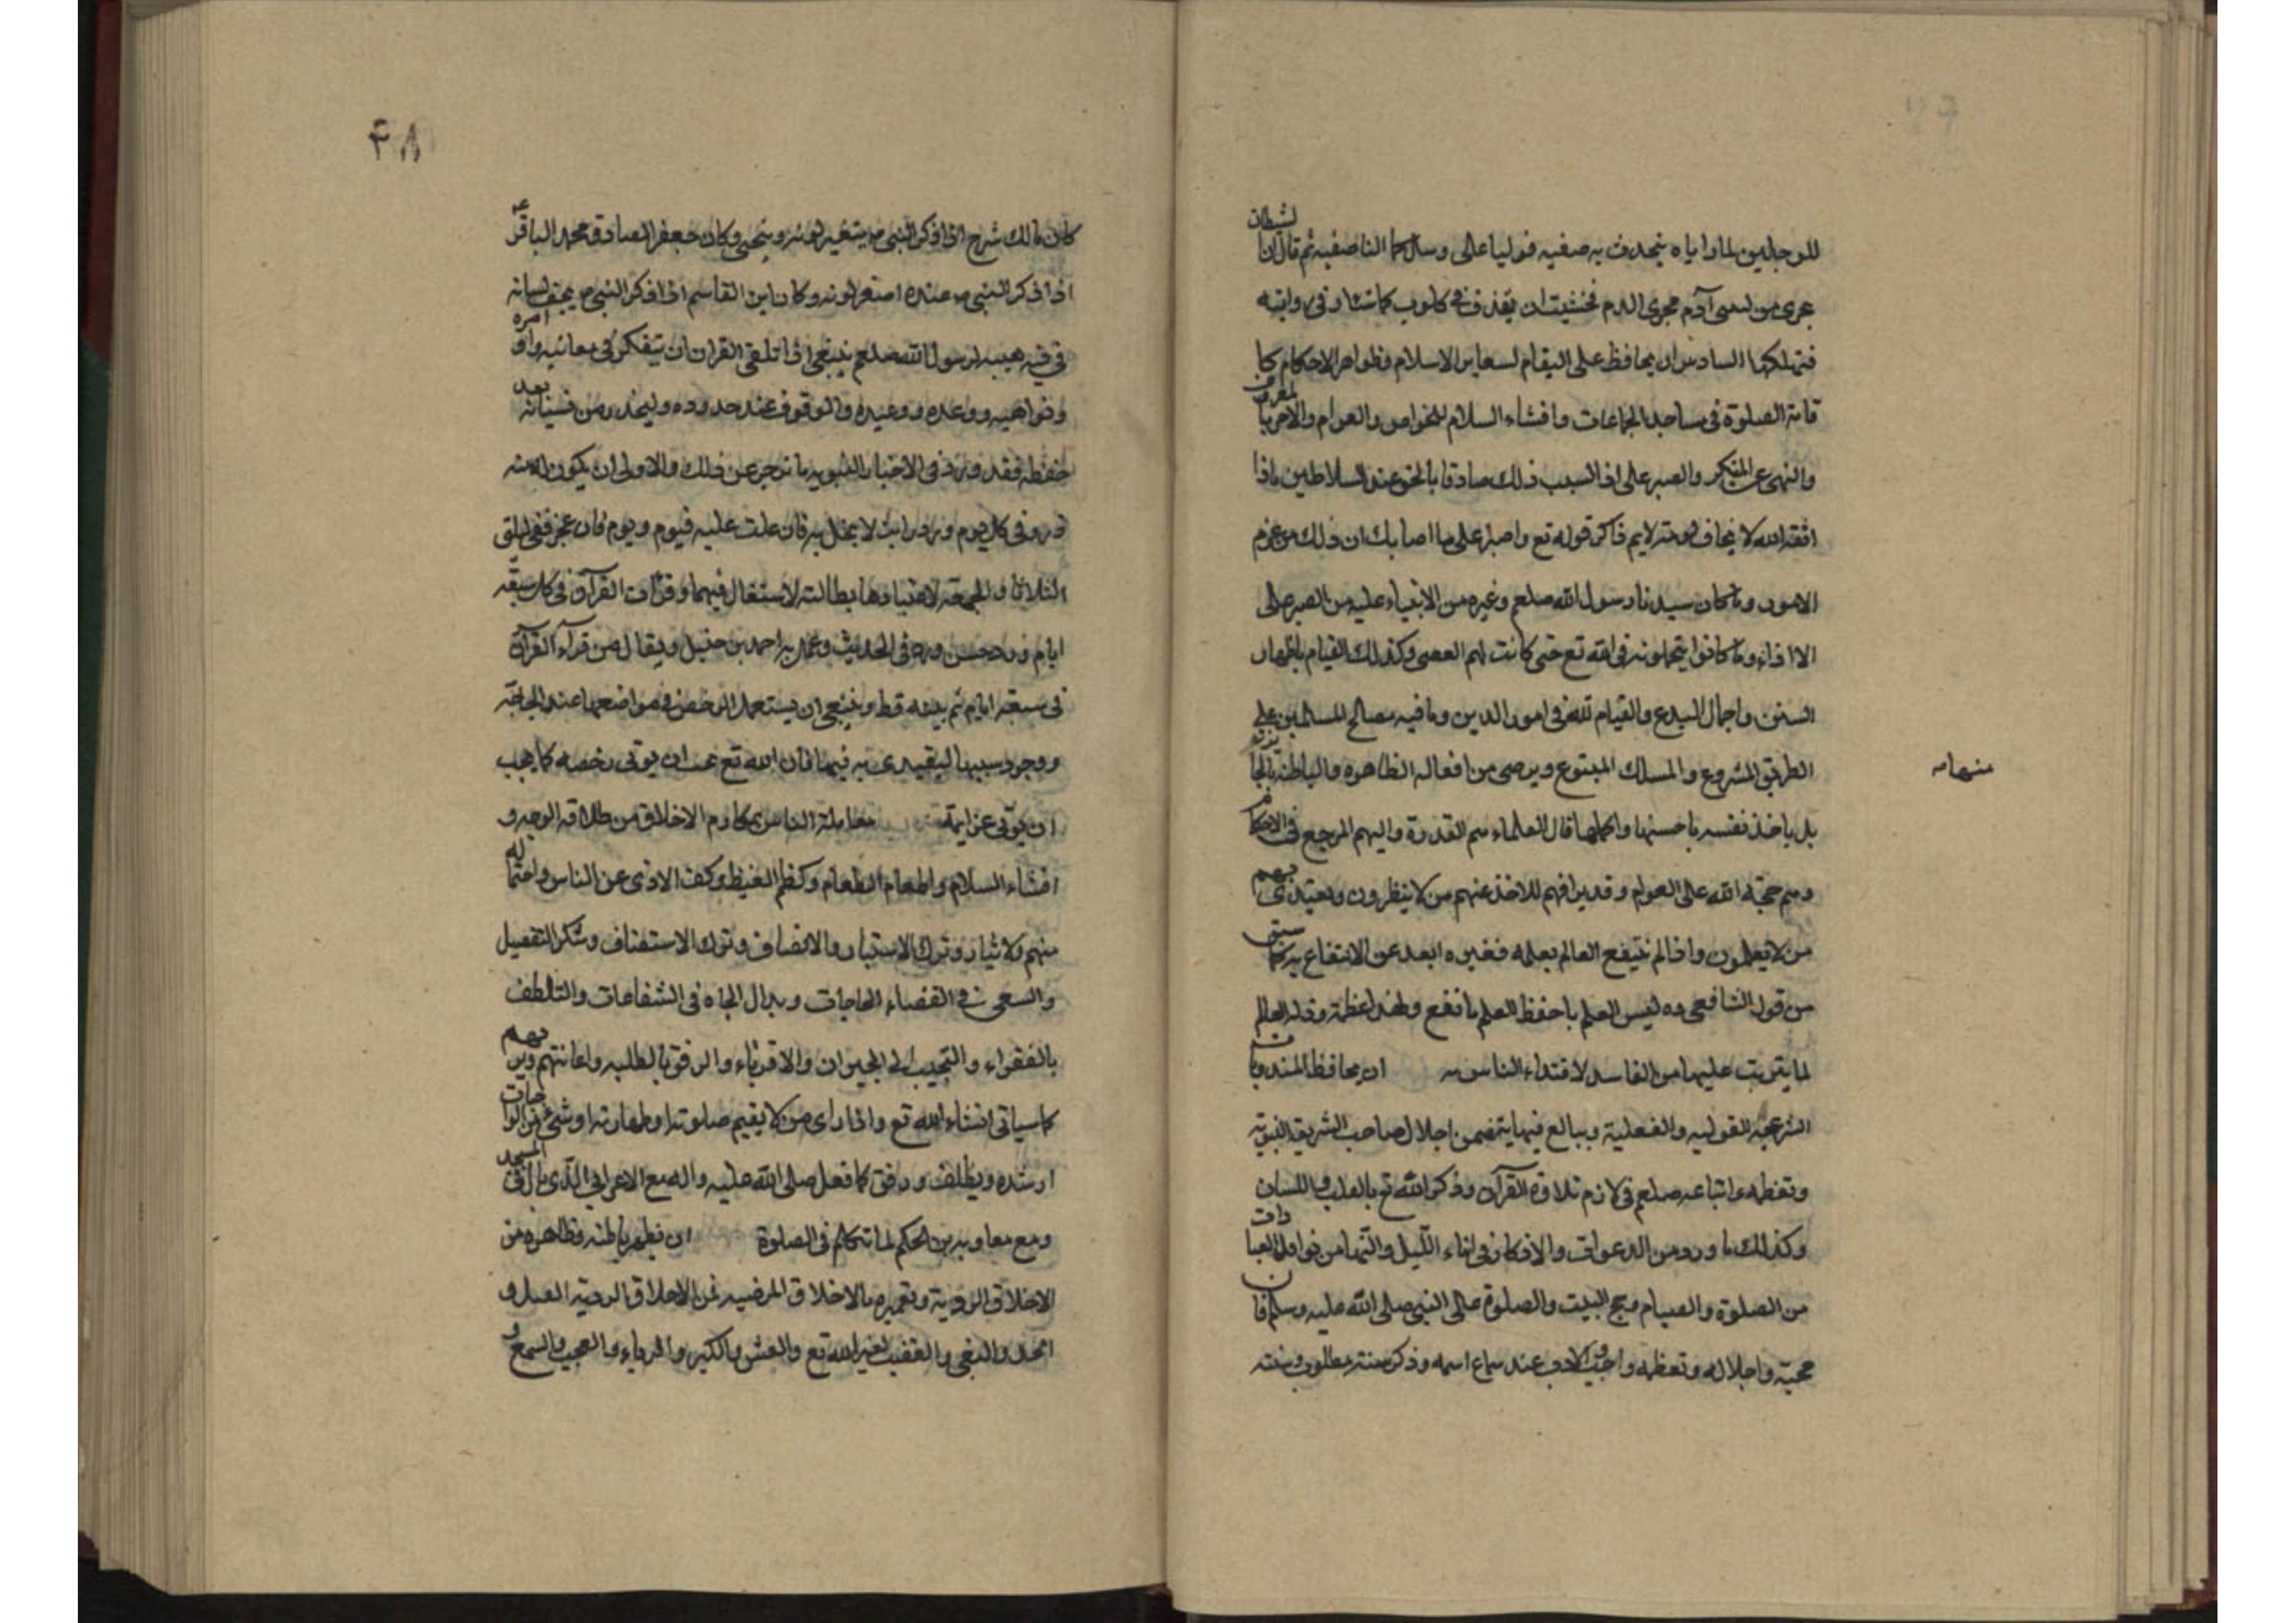 للرجلين لما راياه يتحدث مع صفيه فوليا على رسلكما انها صفيه ثم قال ان الشيطان
يجرى من ابن آدم مجرى الدم فخشيت ان يقذف فى قلوبكما شيئا وفى روايته
فتهلكها السادس ان يحافظ على القيام لسعاير الاسلام وظواهر الاحكام كا
قامة الصلوة فى مساجد الجماعات وافشاء السلام للخواص والعوام والامر بالمعروف
والنهى عن المنكر والصبر على اذا لسبب ذلك صادقا بالحق عند السلاطين باذا
الله لا يخاف لومته لايم ذاكر قوله تع واصبر على ما اصابك ان ذلك من عزم
الامور وما كان سيدنا رسول الله صلعم وغيره من الانبياء عليه من الصبر على
الااذاء وما كانوا يتحملونه فى الله تع حتى كانت لهم العصى وكذلك القيام باظهار
السنن واجمال البدع والقيام لله فى امور الدين وما فيه مصالح المسلمين على
الطريق المشروع والمسلك المبتوع ويرصى من افعاله الظاهره والباطنه بالجايزة
منها مه
بل ياخذ نفسه باحسنها واكملها قال العلماء هم القدرة واليهم المرجع فى الاحكام
وهم حجة الله على العوام وقد يراقبهم للاخذ عنهم من لا ينظرون ويقتدى بهم
من لا يعلمون واذا لم ينتفع العالم بعلمه فغيره ابعد عن الانتفاع به كما سبق
من قول الشافعى ره ليس العلم ما حفظ العلم ما نفع ولهذا عظمة وزلة العالم
لما يترتب عليها من المفاسد لاقتداء الناس به ان يحافظ المندوبات
الشرعيه القوليه والفعلية ويبالغ فيما يتضمن اجلال صاحب الشريعة النبويه
وتعظيمه واتباعه صلعم فى لازم تلاوة القرآن وذكر الله تع بالقلب واللسان
وكذلك ما ورد من الدعوات والاذكار فى اناء الليل والنهار من نوافل العبادات
من الصلوة والصيام وحج البيت والصلوة على النبى صلى الله عليه وسلم فان
محبته واجلاله وتعظيمه واجب والادب عند سماع اسمه وذكر سنته مطلوب وسنته
۴۸
كان مالك شرح اذا ذكر النبى ص يتغير لونه وينحنى وكان جعفر الصادق محمد الباقر عه
اذا ذكر النبى ص عنده اصفر لونه وكان ابن القاسم اذا ذكر النبى ص يجف لسانه
فى فيه هيبه لرسول الله صلعم ينبغى اذا تلقى القران ان يتفكر فى معانيه واوامره
ونواهيه ووعده ووعيده والوقوف عند حدوده وليحذر من نسيانه بعد
حفظه فقد ورد فى الاخبار النبويه ما يزجر عن ذلك والاولى ان يكون له منه
ورد فى كل يوم ورد راتب لا يخل به فان غلب عليه فيوم ويوم فان عجز ففى ليلتى
الثلاثا والجمعه لاعتيادها بطالت الاشتغال فيهما وقرائت القرآن فى كل سبعة
ايام ورد حسن ورد فى الحديث وعمل به احمد بن حنبل ويقال من قرآء القرآن
فى سبعة ايام لم ينسه قط وينبغى ان يستعمل الرخص فى مواضعها عند الحاجة
ووجود سببها ليقتدى به فيها فان الله تع يحب ان يوتى رخصه كما يحب
ان يوتى عزايمه معاملة الناس بمكارم الاخلاق من طلاقه الوجه و
افشاء السلام واطعام الطعام وكظم الغيظ وكف الاذى عن الناس واحتماله
منهم والايثار وترك الاستيثار والانصاف وترك الاستنصاف وشكر التفضيل
والسعى فى القضاء الحاجات وبذل الجاه فى الشفاعات والتلطف
بالفقراء والتحبب الى الجيران والاقرباء والرفق بالطلبه واعانتهم وبرهم
كما سياتى انشاء الله تع واذا راى من لا يقيم صلوته او طهارته او شئ من الواجبات
ارشده ويطلف ورفق كما فعل صلى الله عليه واله مع الاعرابى الذى بال فى المسجد
ومع معاويه بن الحكم لما تكلم فى الصلوة ان يطهر باطنه وظاهره من
الاخلاق الرديه ويعمره بالاخلاق المرضيه فمن الاخلاق الرديه الغل و
الحسد والبغى والغضب لغير الله تع والغش والكبر والرياء والعجب والسمع و